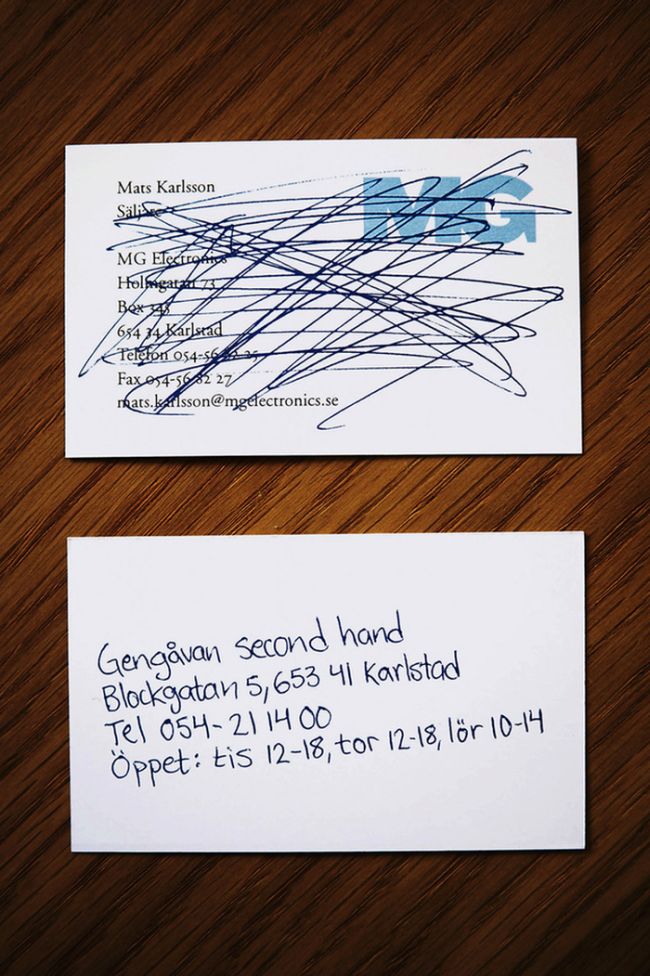 Mats Karlsson
MG
Säljare
MG Electronics
Holmgatan 73
Box 343
654 34 Karlstad
Telefon 054-56 82 25
Fax 054-56 82 27
mats.karlsson@mgelectronics.se
Gengåvan second hand
Blockgatan 5, 653 41 Karlstad
Tel 054-21 14 00
Öppet: tis 12-18, tor 12-18, lör 10-14